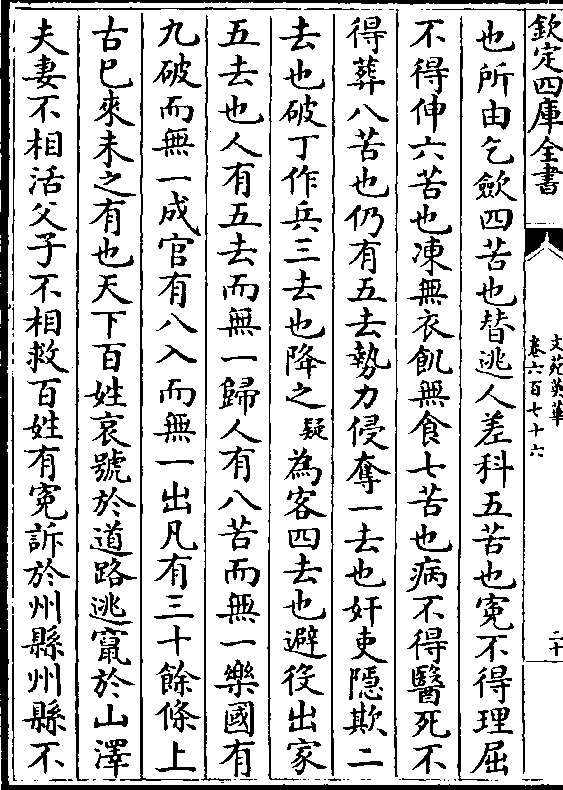 欽定四庫全書
文苑英華
卷六百七十六
二十
也所由乞斂四苦也替逃人差科五苦也寃不得理屈
不得伸六苦也凍無衣飢無食七苦也病不得醫死不
得葬八苦也仍有五去勢力侵奪一去也奸吏隱欺二
去也破丁作兵三去也降之疑為客四去也避役出家
五去也人有五去而無一歸人有八苦而無一樂國有
九破而無一成官有八入而無一出凡有三十餘條上
古已來未之有也天下百姓哀號於道路逃竄於山澤
夫妻不相活父子不相救百姓有寃訴於州縣州縣不